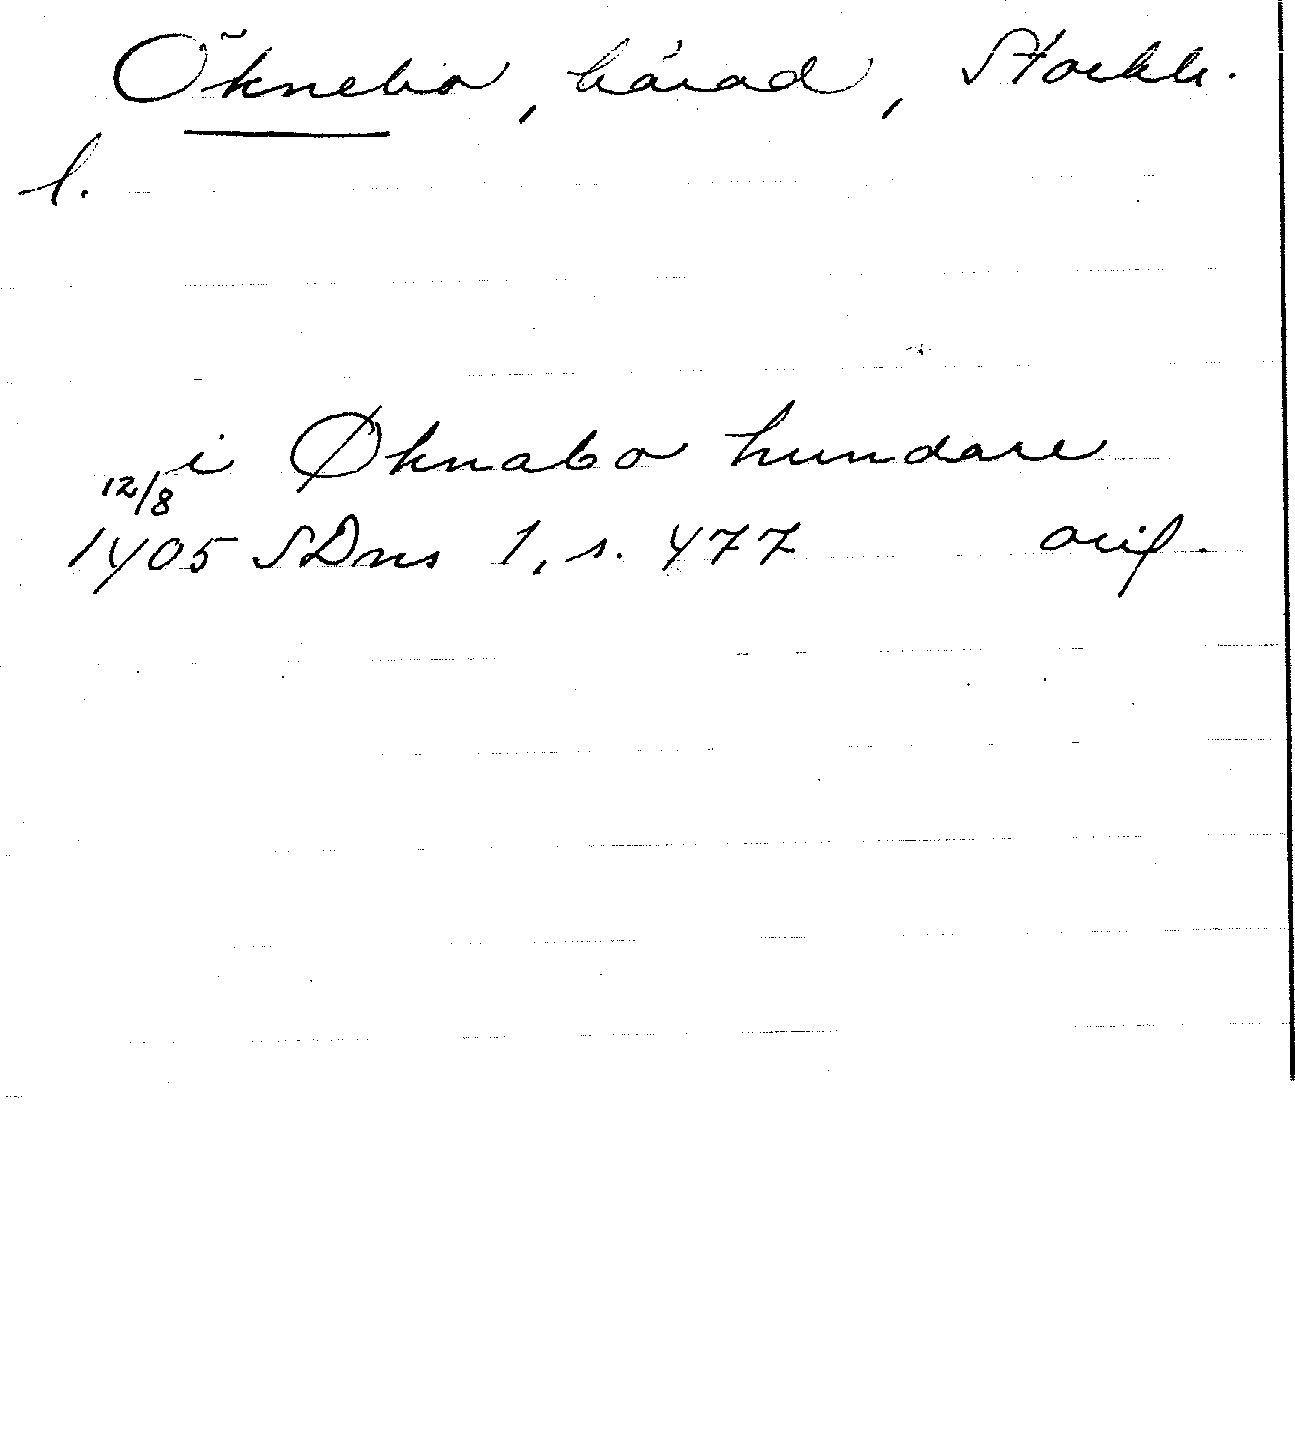 Öknebo, härad, Stockh.
l.
i Øknabo hundare
12/8
1405 SDns 1, s. 477 orig.